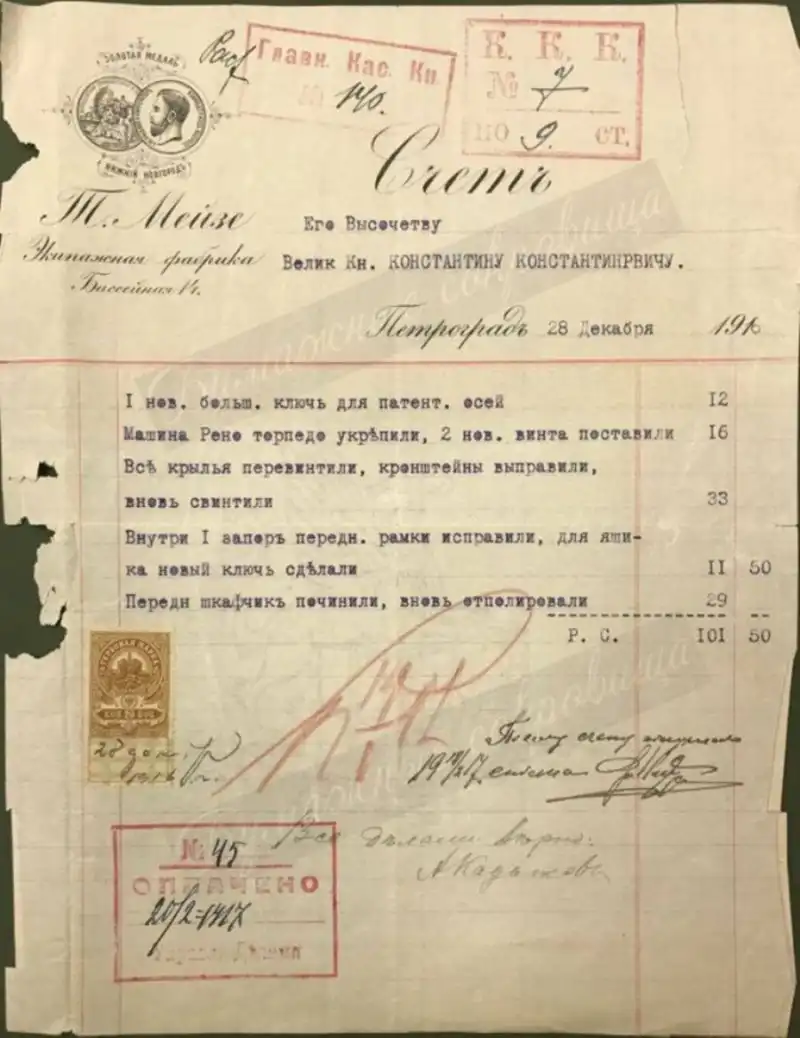 ЗОЛОТАЯ МЕДАЛЬ
НИЖНІЙ НОВГОРОДЪ
Главн. Кас. Кн.
№ 140.
К. К. К.
№ 7
по 9. ст.
Счетъ
Т. Мейзе
Экипажная фабрика
Бассейная 14.
Его Высочетву
Велик Кн. КОНСТАНТИНУ КОНСТАНТИНРВИЧУ.
Петроградъ 28 Декабря 1916
I нов. больш. ключь для патент. осей 12
Машина Рено торпедо укрѣпили, 2 нов. винта поставили 16
Всѣ крылья перевинтили, кронштейны выправили,
вновь свинтили 33
Внутри I запоръ передн. рамки исправили, для яши-
ка новый ключь сдѣлали II 50
Передн шкафчикъ починили, вновь отполировали 29
Р. С. IOI 50
ГЕРБОВАЯ МАРКА
28 дек.
1916 г.
По сему счету получилъ
Все сдѣлано вѣрно.
№ 45
ОПЛАЧЕНО
20/2=1917
Бумажные сокровища